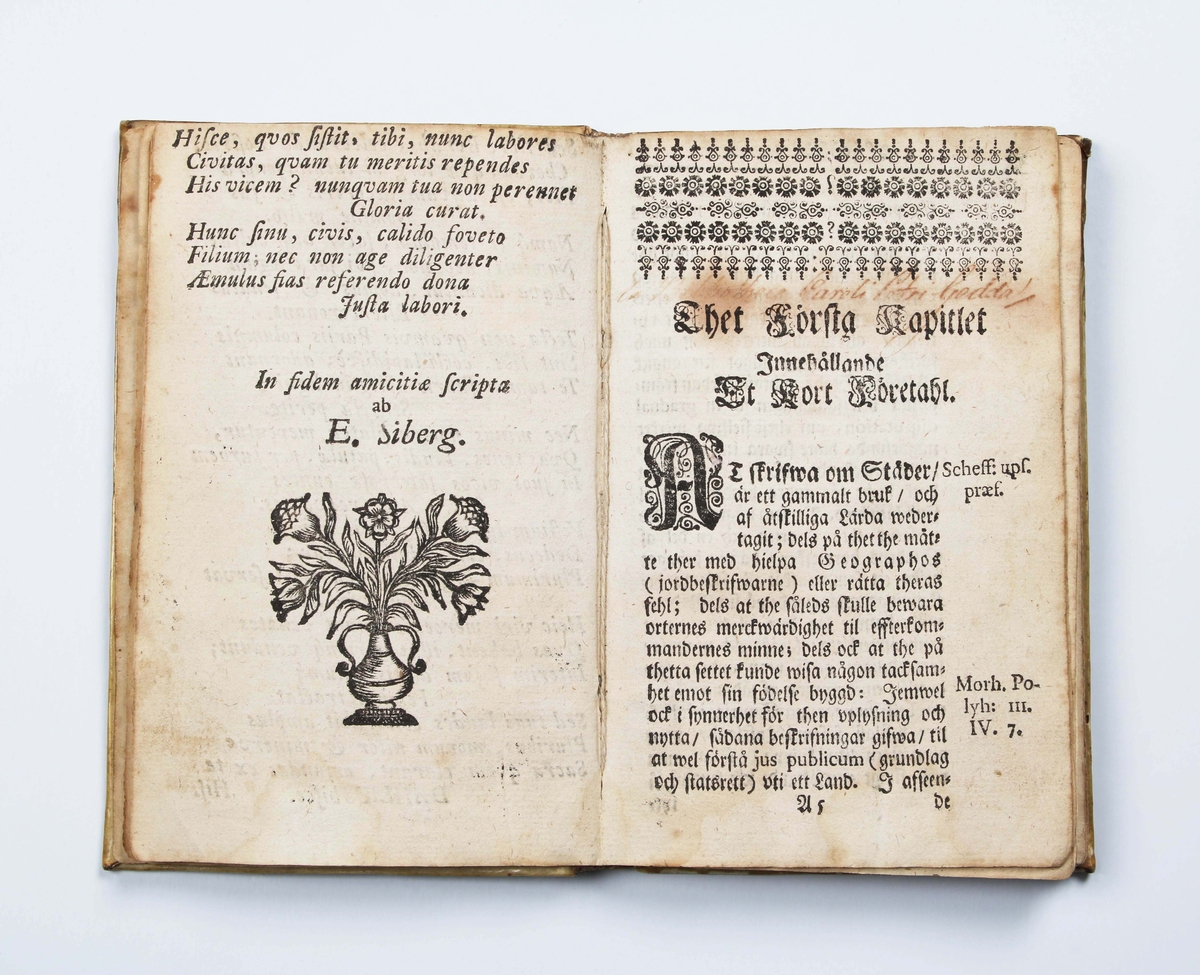 Hiſce, qvos ſiſtit, tibi, nunc labores
Civitas, qvam tu meritis rependes
His vicem? nunqvam tua non perennet
Gloria curat.
Hunc ſinu, civis, calido foveto
Filium; nec non age diligenter
Æmulus fias referendo dona
Juſta labori.
In fidem amicitiæ ſcripta
ab
E. Siberg.
Caroli
Thet Förſta Kapitlet
Innehållande
Et Kort Företahl.
AT ſkrifwa om Städer/
är ett gammalt bruk/ och
af åtſkilliga Lärda weder⸗
tagit; dels på thet the måt⸗
te ther med hielpa Geographos
(jordbeſkrifwarne) eller rätta theras
fehl; dels at the ſåleds ſkulle bewara
orternes merckwärdighet til effterkom⸗
mandernes minne; dels ock at the på
thetta ſettet kunde wiſa någon tackſam⸗
het emot ſin födelſe byggd: Jemwel
ock i ſynnerhet för then vplyſning och
nytta/ ſådana beſkrifningar gifwa/ til
at wel förſtå jus publicum (grundlag
och ſtatsrett) vti ett Land. I afſeen⸗
A5 de
Scheff: upſ.
præf.
Morh. Po-
lyh: III.
IV. 7.